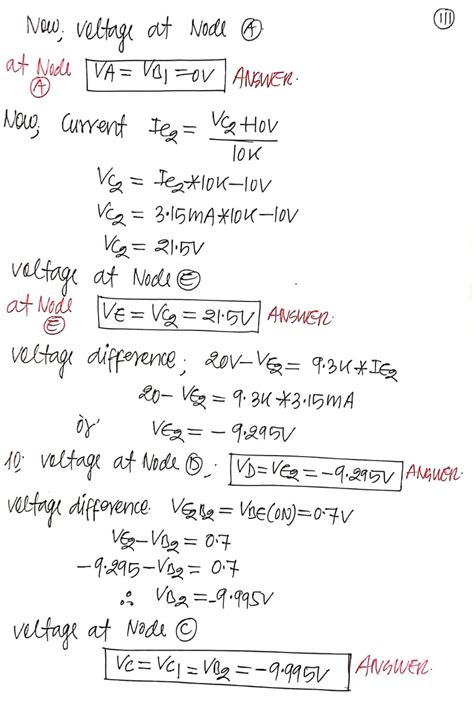 (III)
Now, voltage at Node (A)
at Node (A) VA = VB1 = 0V ANSWER.
Now, Current IC2 = VC2 + 10V / 10K
VC2 = IC2 * 10K - 10V
VC2 = 3.15mA * 10K - 10V
VC2 = 21.5V
voltage at Node (E)
at Node (E) VE = VC2 = 21.5V ANSWER.
voltage difference; 20V - VE2 = 9.3K * IE2
20 - VE2 = 9.3K * 3.15mA
or VE2 = - 9.295V
10; voltage at Node (D); VD = VE2 = -9.295V ANSWER.
voltage difference. VE2B2 = VBE(ON) = 0.7V
VE2 - VB2 = 0.7
-9.295 - VB2 = 0.7
∴ VB2 = -9.995V
voltage at Node (C)
VC = VC1 = VB2 = -9.995V ANSWER.